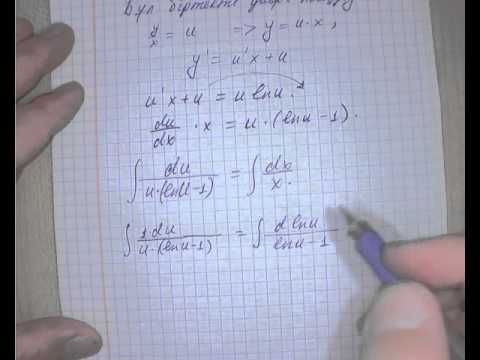 Бул
y/x = u => y = u·x,
y' = u'x + u
u'x + u = u ln u.
du/dx · x = u·(ln u − 1).
∫ du/(u·(ln u − 1)) = ∫ dx/x.
∫ 1 du/(u·(ln u − 1)) = ∫ d ln u/(ln u − 1)